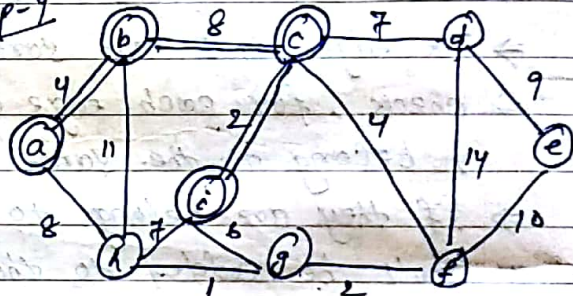 p-4
b 8 c 7 d
4 9
a 11 2 4 14 e
i
8 7 6 10
h g f
1 2